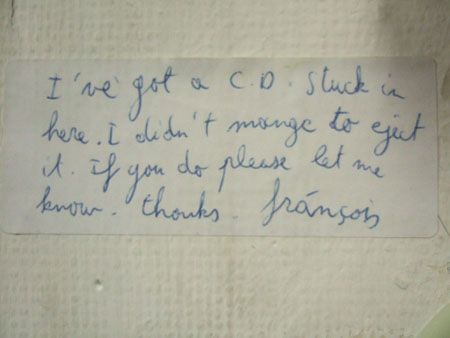 I've got a C.D. stuck in
here. I didn't mange to eject
it. If you do please let me
know. thanks. fránçois